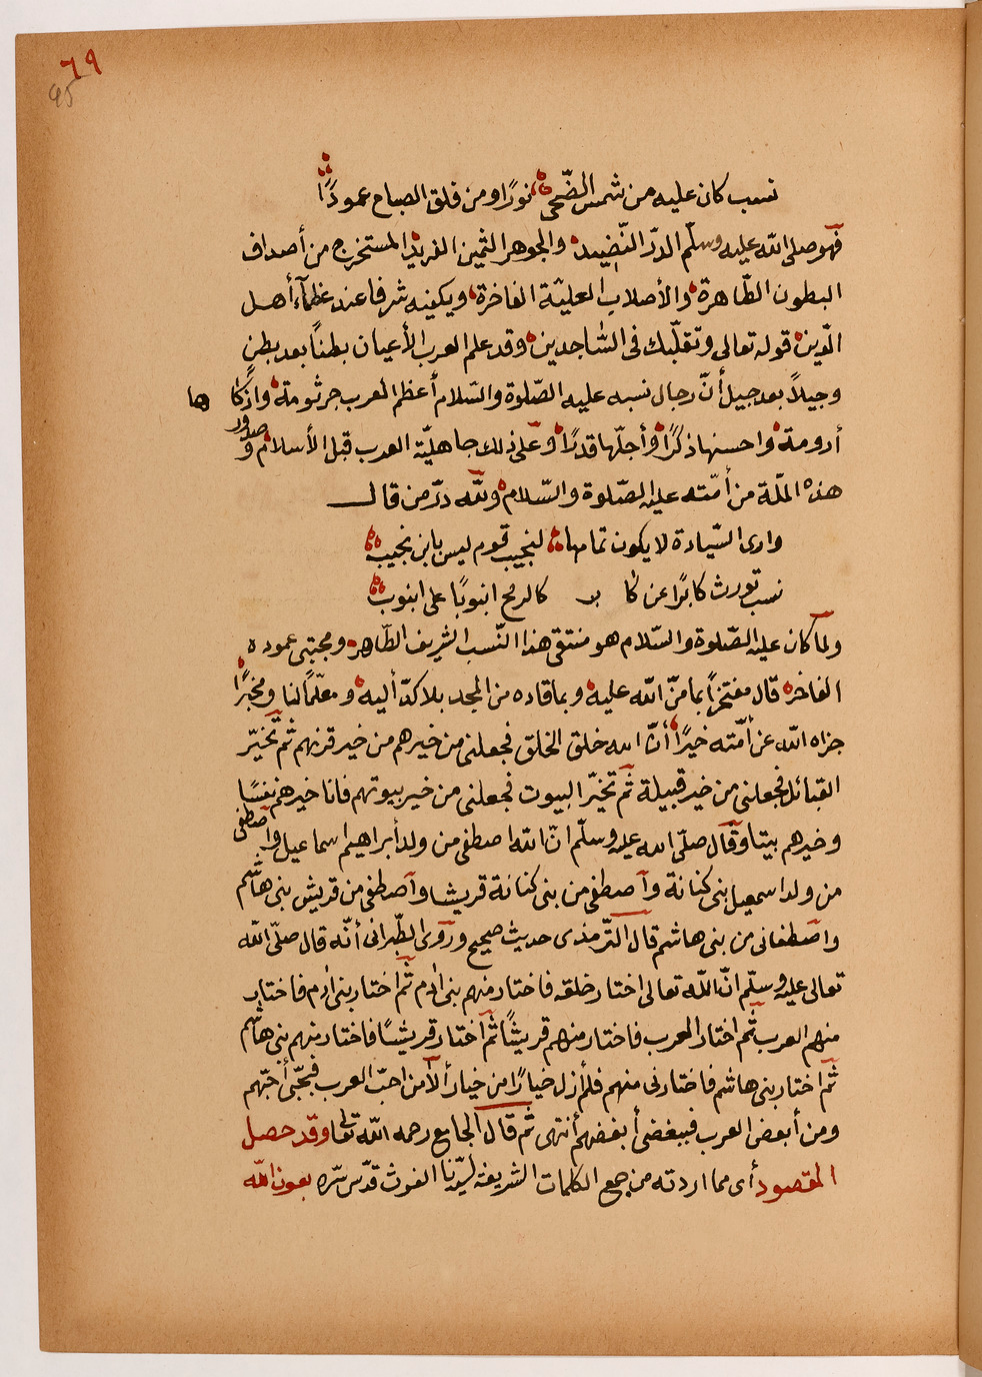 ٦٩
95
نسب كان عليه من شمس الضّحى نورًا ومن فلق الصباح عمودًا
فهو صلى الله عليه وسلّم الدرّ النّضيد والجوهر الثمين الفريد المستخرج من أصداف
البطون الطّاهرة والأصلاب العليّة الفاخرة ويكفيه شرفا عند عظمآء أهل
الدّين قوله تعالى وتقلّبك فى السّاجدين وقد علم العرب الأعيان بطناً بعد بطن
وجيلاً بعد جيل أنّ رجال نسبه عليه الصّلوة والسّلام أعظم العرب جرثومة وازكاها
أرومة واحسنها ذكرًا وأجلّها قدرًا وعلى ذلك جاهليّة العرب قبل الأسلام وصدور
هذه الملّة من أمّته عليه الصّلوة والسّلام ولله درّ من قال
وارى السّيادة لا يكون تمامها لنجيب قوم ليس بابن نجيب
نسب تورث كابرًا عن كابر كالرمح انبوبًا على انبوب
ولما كان عليه الصّلوة والسّلام هو منتقى هذا النّسب الشريف الطّاهر ومجتبى عموده
الفاخر قال مفتخراً بما منّ الله عليه وبما قاده من المجد بلا كدّ أليه ومعلّمًا لنا ومخبرًا
جزاه الله عن أمّته خيرًا أنّ الله خلق الخلق فجعلنى من خيرهم من خير قرنهم ثم تخيّر
القبائل فجعلنى من خير قبيلة ثم تخيّر البيوت فجعلنى من خير بيوتهم فانا خيرهم نفسًا
وخيرهم بيتا وقال صلّى الله عليه وسلّم انّ الله اصطفى من ولد أبراهيم اسماعيل واصطفى
من ولد اسمعيل بنى كنانة وآصطفى من بنى كنانة قريشا وآصطفى من قريش بنى هاشم
واصطفانى من بنى هاشم قال التّرمذى حديث صحيح وروى الطّبرانى أنّه قال صلّى الله
تعالى عليه وسلّم انّ الله تعالى اختار خلقه فاختار منهم بنى آدم ثم اختار بنى آدم فاختار
منهم العرب ثم اختار العرب فاختار منهم قريشًا ثم اختار قريشًا فاختار منهم بنى هاشم
ثم اختار بنى هاشم فاختارنى منهم فلم أزل خيارًا من خيار ألا من احبّ العرب فبحبّى أحبّهم
ومن أبغض العرب فببغضى أبغضهم أنتهى ثم قال الجامع رحمه الله تعالى وقد حصل
المقصود أى مما اردته من جمع الكلمات الشريفة لسيّدنا الغوث قدّس سرّه بعون الله